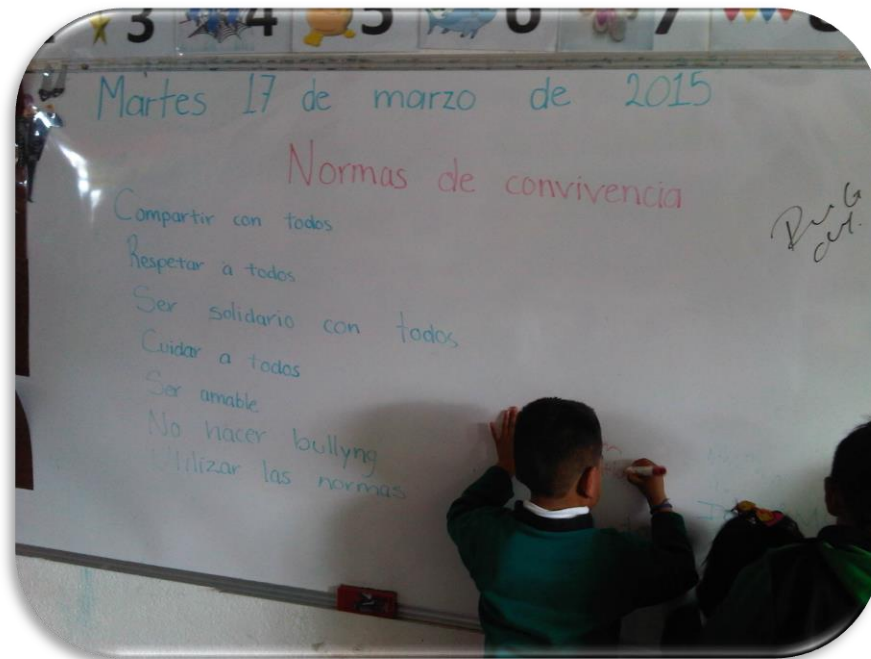 3 4 5 6 7
Martes 17 de marzo de 2015
Normas de convivencia
Compartir con todos
Respetar a todos
Ser solidario con todos
Cuidar a todos
Ser amable
No hacer bullyng
Utilizar las normas